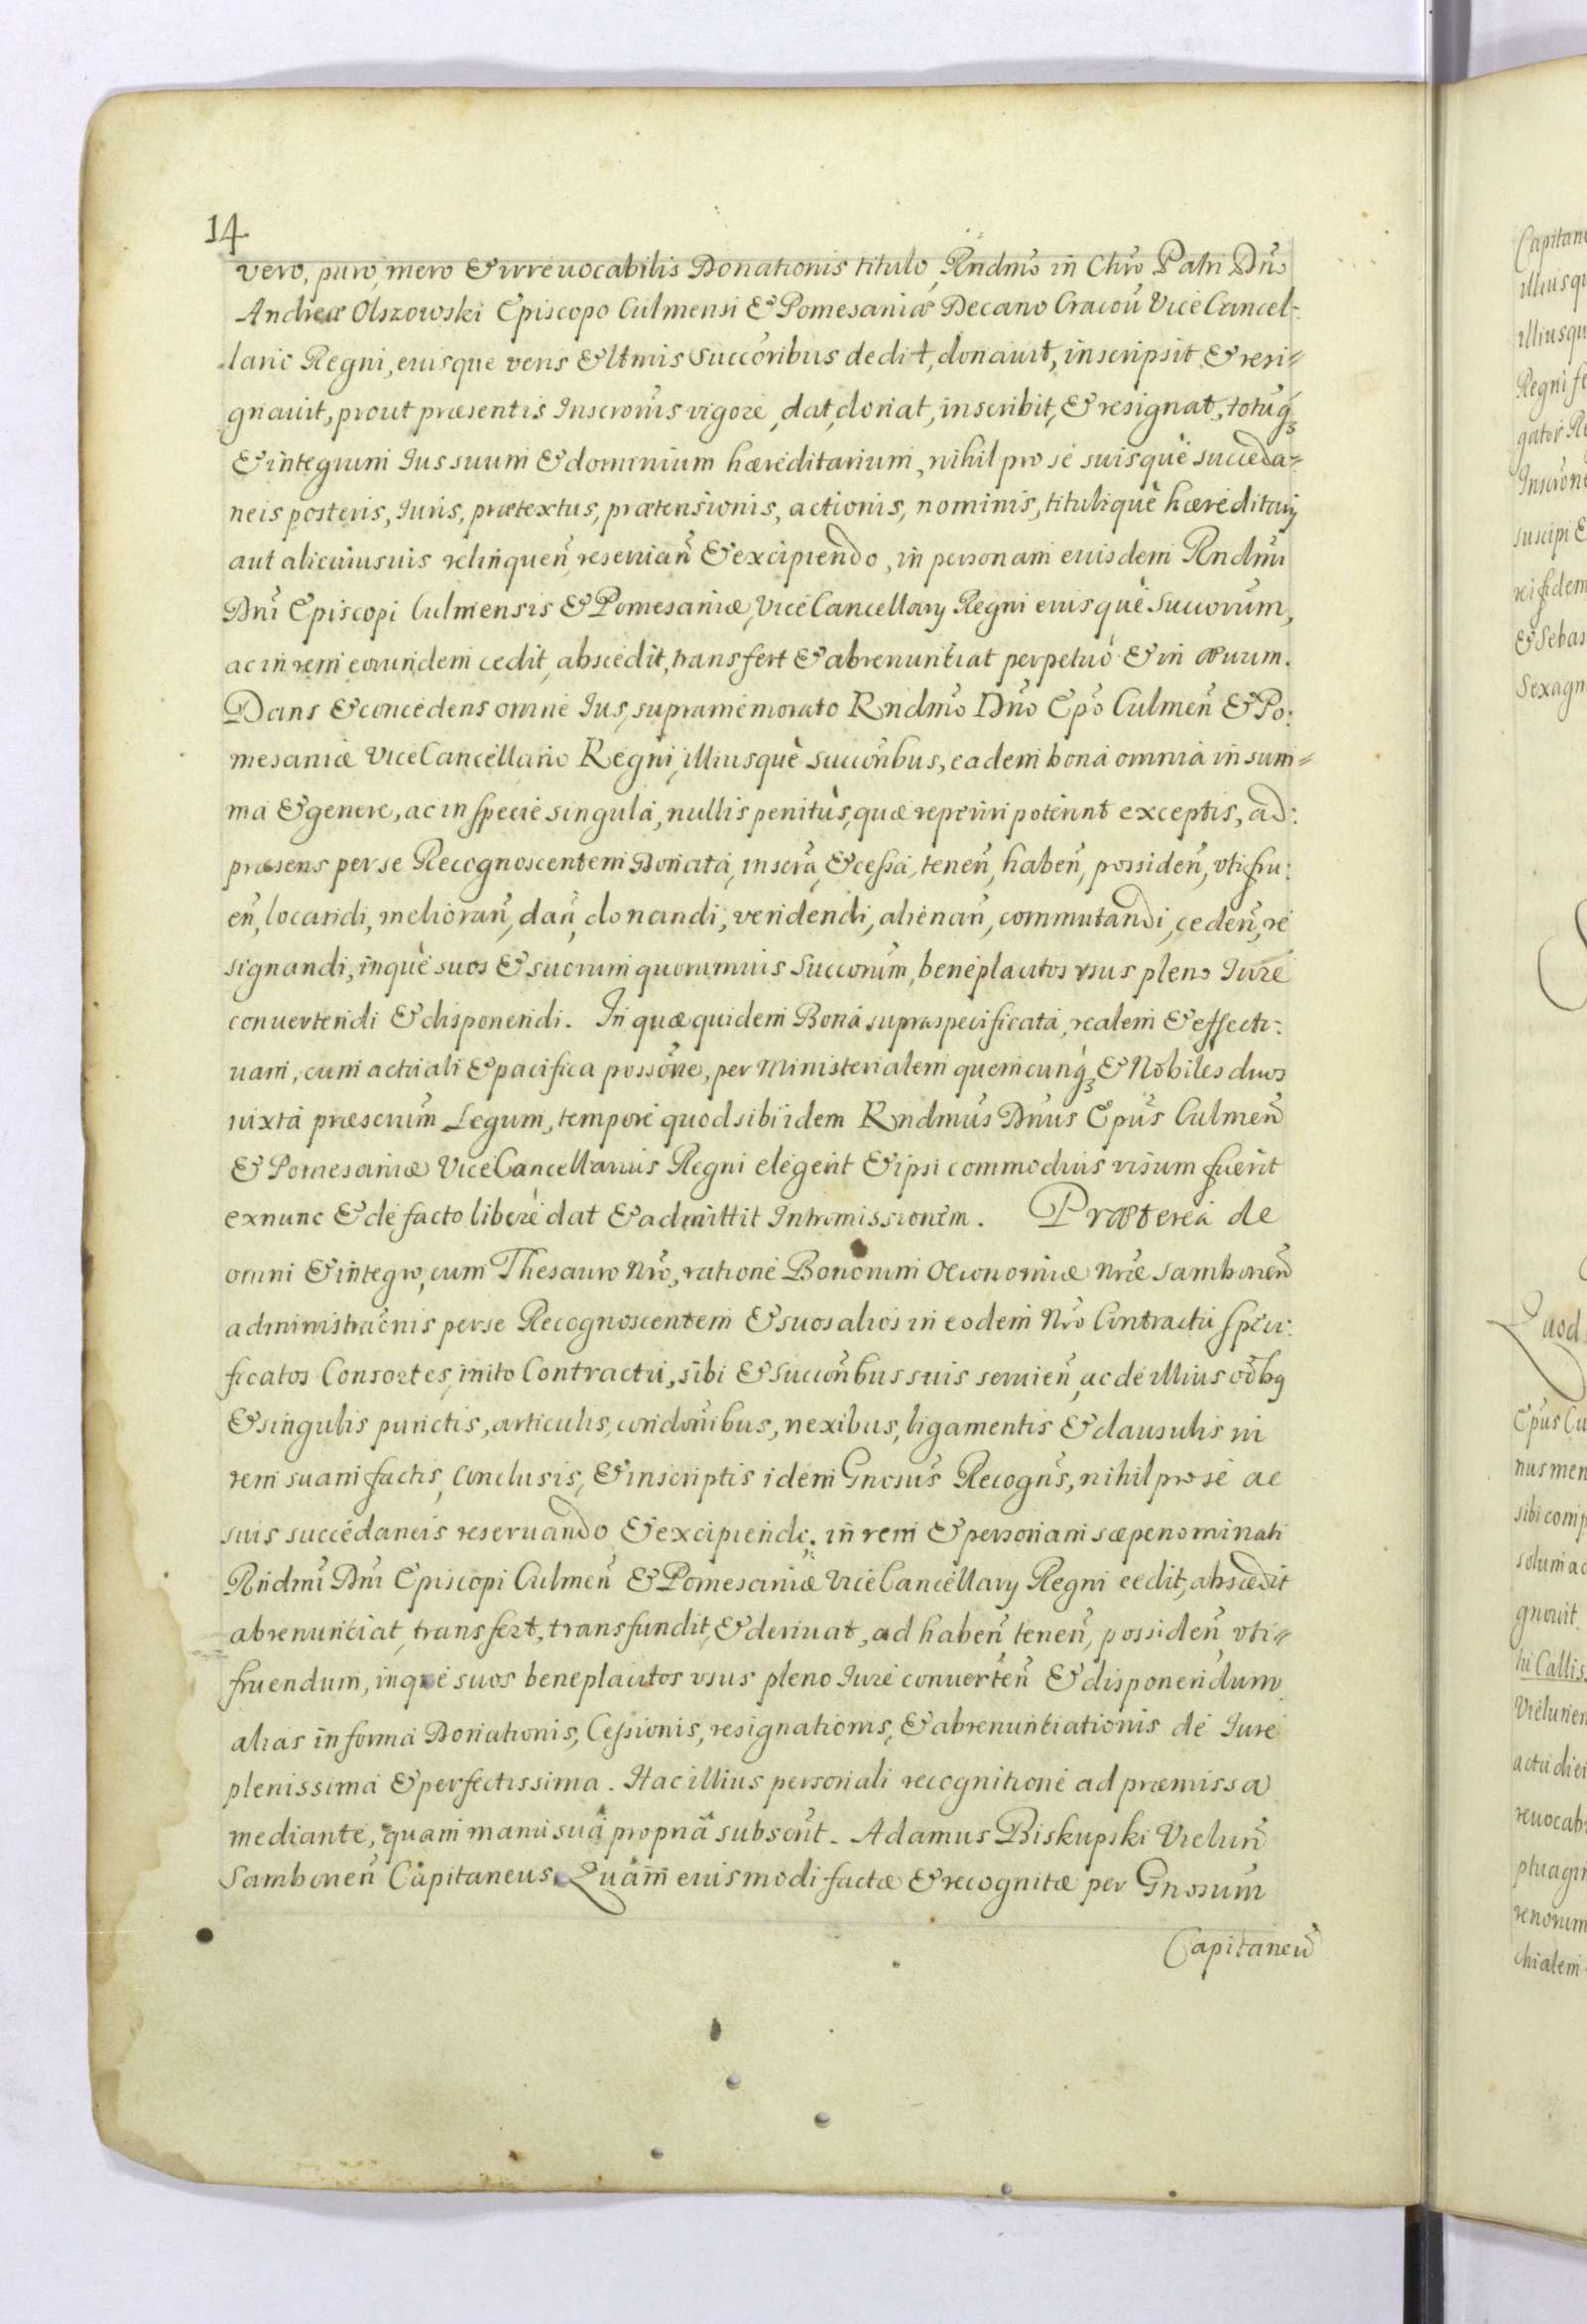 14
vero, puro, mero & irreuocabilis Donationis titulo, Rndmo in Chro Patri Dno
Andreæ Olszowski Episcopo Culmensi & Pomesaniæ Decano Cracou Vice Cancel-
lario Regni, eiusque veris & ltmis succoribus dedit, donauit, inscripsit & resi-
gnauit, prout præsentis Inscronis vigore, dat, donat, inscribit, & resignat, totuq3
& integrum Ius suum & dominium hæreditarium, nihil pro se suisque succeda-
neis posteris, Iuris, prætextus, prætensionis, actionis, nominis, titulique hæreditarij
aut alicuiusuis relinquen, reseruan & excipiendo, in personam eiusdem Rndmi
Dni Episcopi Culmensis & Pomesaniæ, Vice Cancellarij Regni eiusque succorum,
ac in rem eorundem cedit, abscedit, transfert & abrenuntiat perpetuo & in æuum.
Dans & concedens omne Ius, supramemorato Rndmo Dno Epo Culmen & Po:
mesaniæ Vice Cancellario Regni, illiusque succoribus, eadem bona omnia in sum-
ma & genere, ac in specie singula, nullis penitus, quæ reperiri poterint exceptis, ad:
præsens per se Recognoscentem Donata, inscra, & cessa, tenen, haben, possiden, vtifru:
en, locandi, melioran, dan, donandi, vendendi, alienan, commutandi, ceden, re
signandi, inque suos & suorum quorumuis succorum, beneplacitos vsus pleno Iure
conuertendi & disponendi. In quæ quidem Bona supraspecificata, realem & effecti:
uam, cum actuali & pacifica possone, per Ministerialem quemcunq3 & Nobiles duos
iuxta præscrium Legum, tempore quod sibi idem Rndmus Dnus Epus Culmen
& Pomesaniæ Vice Cancellarius Regni elegerit & ipsi commodius visum fuerit
exnunc & de facto libere dat & admittit Intromissionem. Præterea de
omni & integro, cum Thesauro Nro, ratione Bonorum Oeconomiæ Nræ Samborien
administraonis per se Recognoscentem & suos alios in eodem Nro Contractu speci:
ficatos Consortes, inito Contractu, sibi & succoribus suis seruien, ac de illius oibq
& singulis punctis, articulis, condonibus, nexibus, ligamentis & clausulis in
rem suam factis, conclusis, & inscriptis idem Gnosus Recogns, nihil pro se ac
suis succedaneis reseruando & excipiendo; in rem & personam sæpenominati
Rndmi Dni Episcopi Culmen & Pomesaniæ Vice Cancellarij Regni cedit, abscedit
abrenunciat, transfert, transfundit, & deriuat, ad haben tenen, possiden vti-
fruendum, inque suos beneplacitos vsus pleno Iure conuerten & disponendum
alias in forma Donationis, Cessionis, resignationis, & abrenuntiationis de Iure
plenissima & perfectissima. Hac illius personali recognitione ad præmissa
mediante, quam manu sua propria subscrit. Adamus Biskupski Vielun
Samborien Capitaneus. Quam eiusmodi factæ & recognitæ per Gnosum
Capitaneu